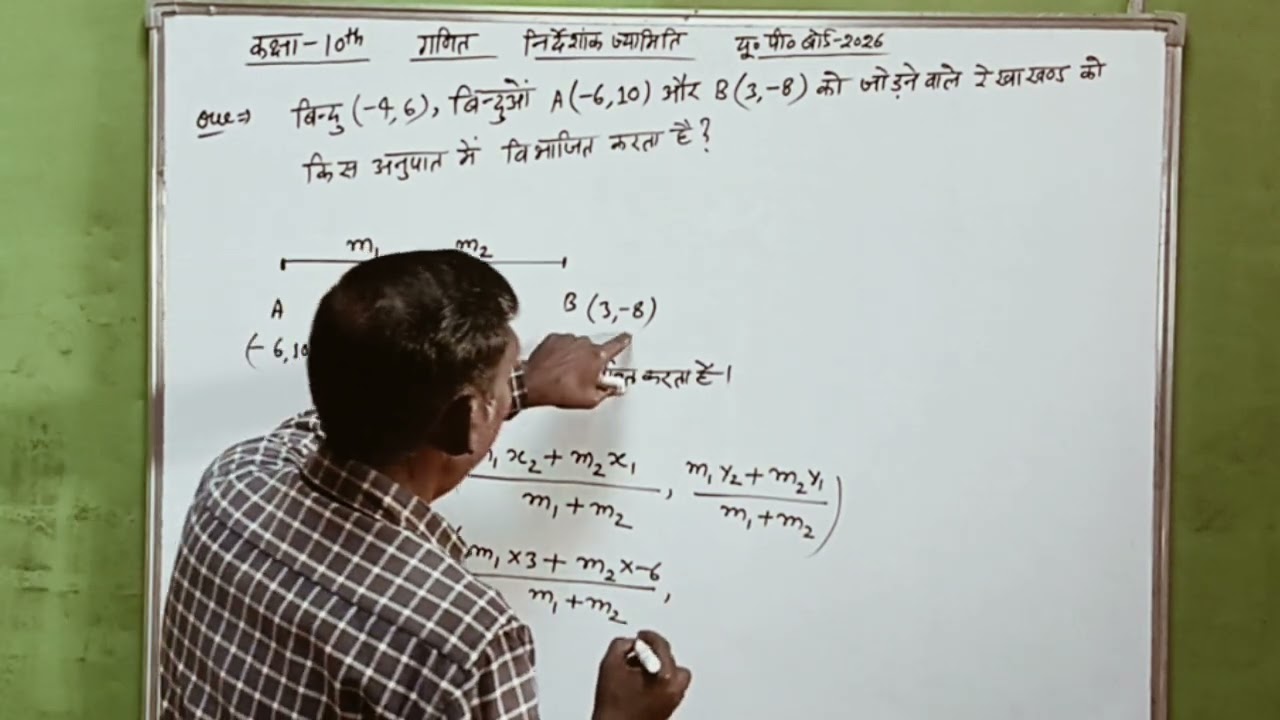 कक्षा-10th गणित निर्देशांक ज्यामिति यू० पी० बोर्ड-2026
Que⇒ बिन्दु (-4,6), बिन्दुओं A(-6,10) और B(3,-8) को जोड़ने वाले रेखाखण्ड को
किस अनुपात में विभाजित करता है?
m₁ m₂
A B (3,-8)
(-6,10
करता है।
m₁x₂+m₂x₁ / m₁+m₂, m₁y₂+m₂y₁ / m₁+m₂)
m₁×3+m₂×-6 / m₁+m₂,